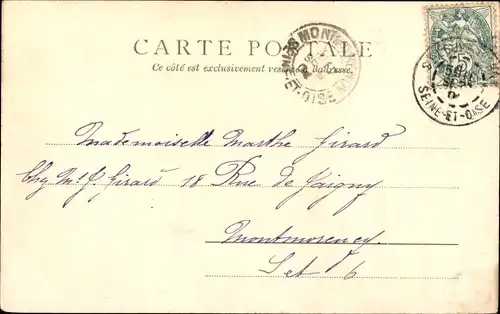 CARTE POSTALE
Ce côté est exclusivement réservé à l'adresse.
SEINE-ET-OISE
SEINE-ET-OISE
Mademoiselle Marthe Girard
Chez Mr G. Girard 18 Rue de Jaigny
Montmorency
S et O